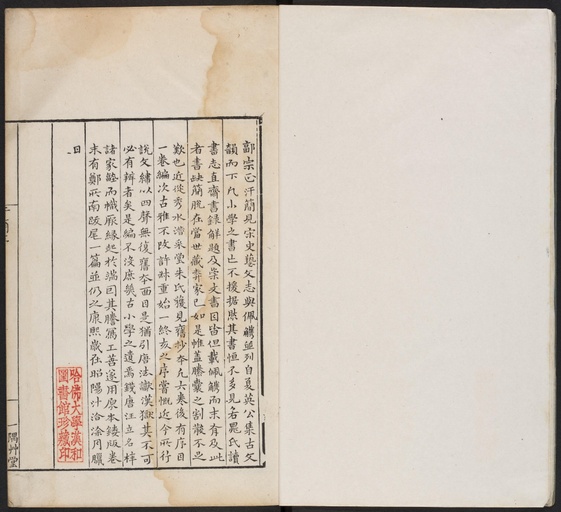 郭宗正汗簡見宋史藝文志與佩觿並列自夏英公集古文
韻而下凡小學之書亡不援據然其書恒不多見若晁氏讀
書志直齋書錄解題及崇文書目皆但載佩觿而未有及此
者書缺簡脫在當世藏弆家已如是帷蓋縢囊之割散不足
歎也近從秀水潛采堂朱氏獲見舊抄本凡六卷後有序目
一卷編次古雅不改許叔重始一終亥之序嘗慨近今所行
說文繡以四聲無復舊本面目是猶引唐法讞漢獄其不可
必有辨者矣是編不没庶幾古小學之遺焉錢唐汪立名梓
諸家塾而幟厥緣起於端因其謄寫工善遂用原本鏤版卷
末有鄭所南跋尾一篇並仍之康熙歲在昭陽汁洽涂月臘
日
一隅艸堂
哈佛大學漢和
圖書館珍藏印